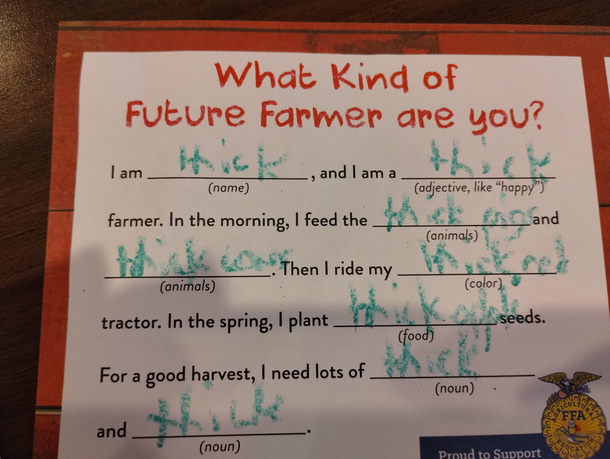 What Kind of
Future Farmer are you?
I am thick, and I am a thick
(name) (adjective, like "happy")
farmer. In the morning, I feed the thick pigs and
(animals)
thick cows. Then I ride my thick red
(animals) (color)
tractor. In the spring, I plant thick apple seeds.
(food)
For a good harvest, I need lots of thick
(noun)
and thick.
(noun)
FFA
Proud to Support